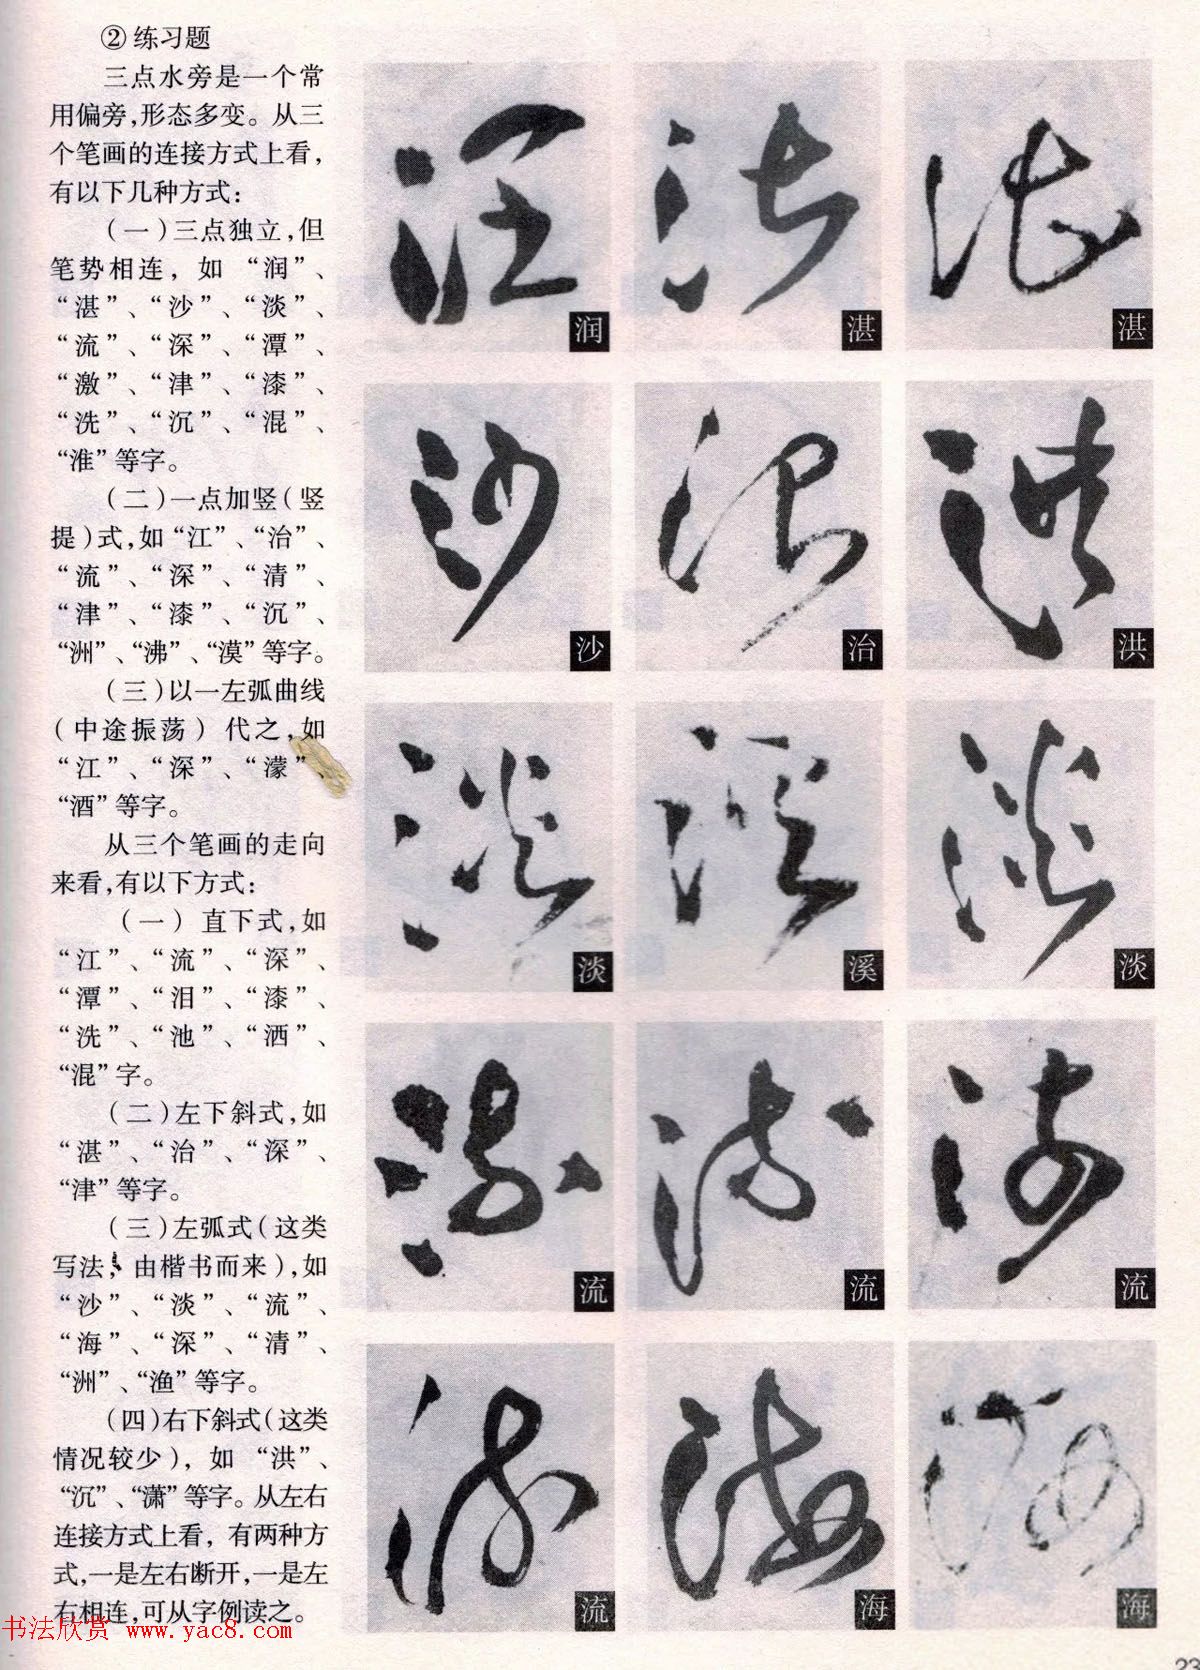 ② 练习题
三点水旁是一个常
用偏旁,形态多变。从三
个笔画的连接方式上看,
有以下几种方式:
(一)三点独立,但
笔势相连，如“润”、
“湛”、“沙”、“淡”、
“流”、“深”、“潭”、
“激”、“津”、“漆”、
“洗”、“沉”、“混”、
“淮”等字。
(二)一点加竖(竖
提)式,如“江”、“治”、
“流”、“深”、“清”、
“津”、“漆”、“沉”、
“洲”、“沸”、“漠”等字。
(三)以一左弧曲线
(中途振荡)代之,如
“江”、“深”、“濛”、
“酒”等字。
从三个笔画的走向
来看,有以下方式:
(一)直下式,如
“江”、“流”、“深”、
“潭”、“泪”、“漆”、
“洗”、“池”、“洒”、
“混”字。
(二)左下斜式,如
“湛”、“治”、“深”、
“津”等字。
(三)左弧式(这类
写法，由楷书而来),如
“沙”、“淡”、“流”、
“海”、“深”、“清”、
“洲”、“渔”等字。
(四)右下斜式(这类
情况较少)，如“洪”、
“沉”、“潇”等字。从左右
连接方式上看，有两种方
式,一是左右断开,一是左
右相连,可从字例读之。
润 湛 湛
沙 治 洪
淡 溪 淡
流 流 流
流 海 海
书法欣赏 www.yac8.com
23